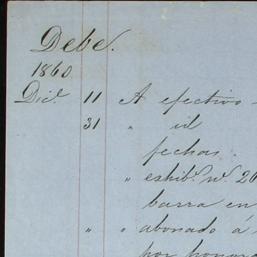 Debe.
1860
Dic.e 11 A efectivo
31 " id
fechas.
" eshib.n n.º 26
barra en
" " abonado á
por honora